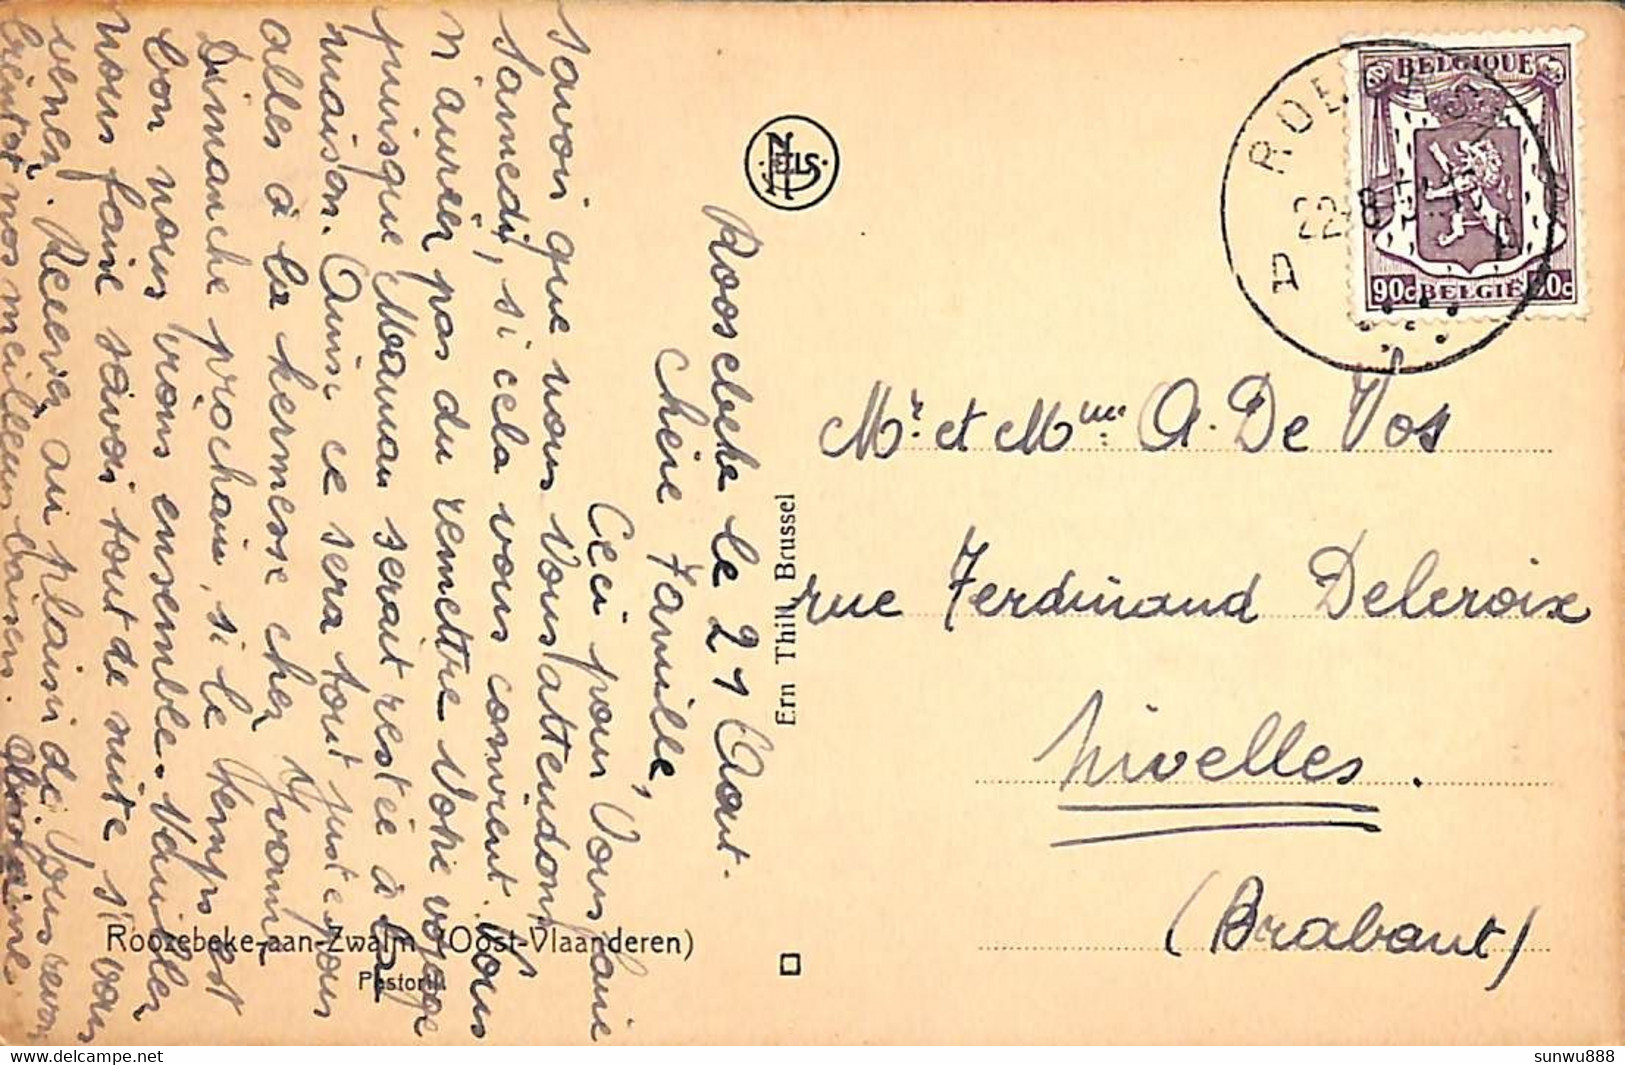 Roosebeke le 21 Aout.
Chère Famille,
Ceci pour Vous faire
savoir que nous Vous attendons
Samedi, si cela vous convient. Vous
n'aurier pas du remettre Votre voyage
puisque Maman serait restée à la
maison. Ainsi ce sera tout juste pour
aller à la kermesse chez Yvonne
Dimanche prochain, si le temps est
bon nous irons ensemble. Veuiller
nous faire savoir tout de suite si vous
vener. Recever au plaisir de Vous revoir
bientot nos meilleurs baisers.
NELS
Ern Thill Brussel
Roozebeke-aan-Zwalm (Oost-Vlaanderen)
Pastorij
BELGIQUE
90c BELGIË 90c
Mr. et Mme. A. De Vos
rue Ferdinand Delcroix
Nivelles.
(Brabant)
sunwu888